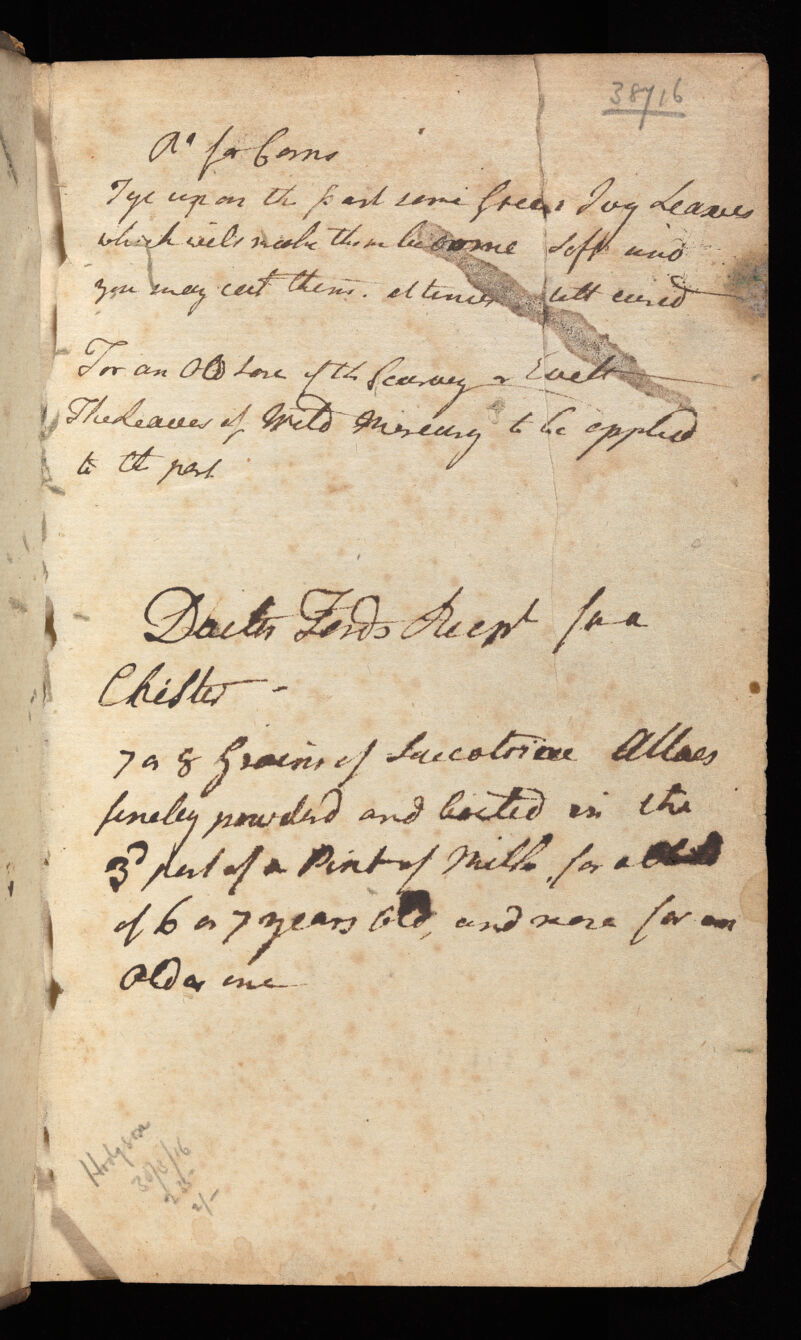 38716
Rt for Corns
Tye upon the part some Green Ivy Leaves
which will make them become Soft and
you may cut them. cured
For an Old Sore of the Scurvey or Evell
The Leaves of Wild Mercury to be applied
to the part
Docter Fords Recept for a
Chister
7 or 8 Grains of Succotrine Alloes
finely powderd and boiled in the
3d part of a Pint of Milk for a Child
of 6 or 7 years Old, and more for an
Older one
Hodgson
30/3/16
2/-